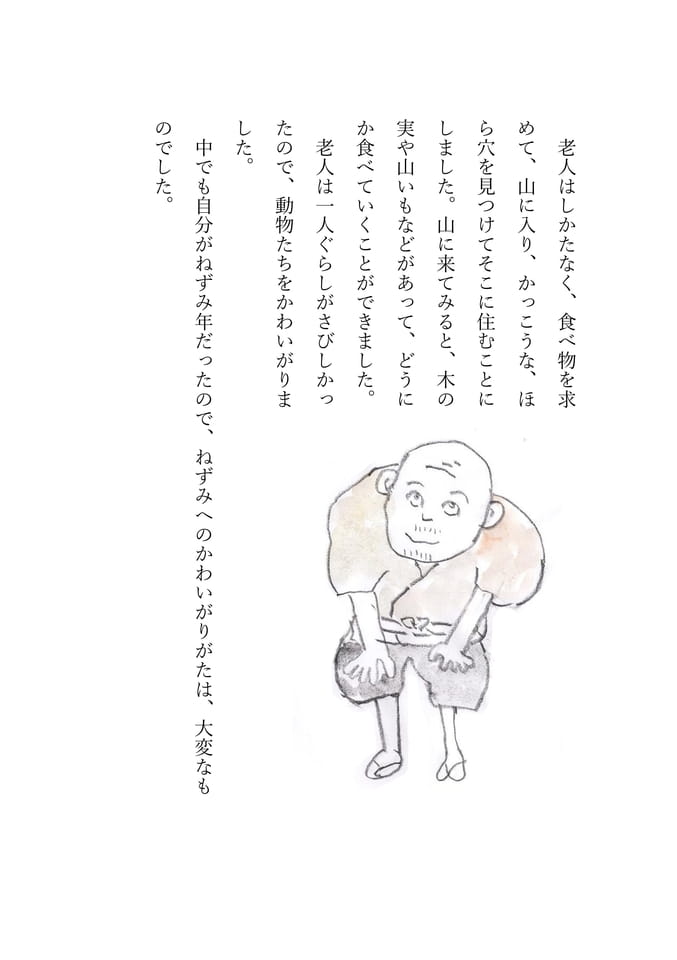 老人はしかたなく、食べ物を求
めて、山に入り、かっこうな、ほ
ら穴を見つけてそこに住むことに
しました。山に来てみると、木の
実や山いもなどがあって、どうに
か食べていくことができました。
老人は一人ぐらしがさびしかっ
たので、動物たちをかわいがりま
した。
中でも自分がねずみ年だったので、ねずみへのかわいがりがたは、大変なも
のでした。